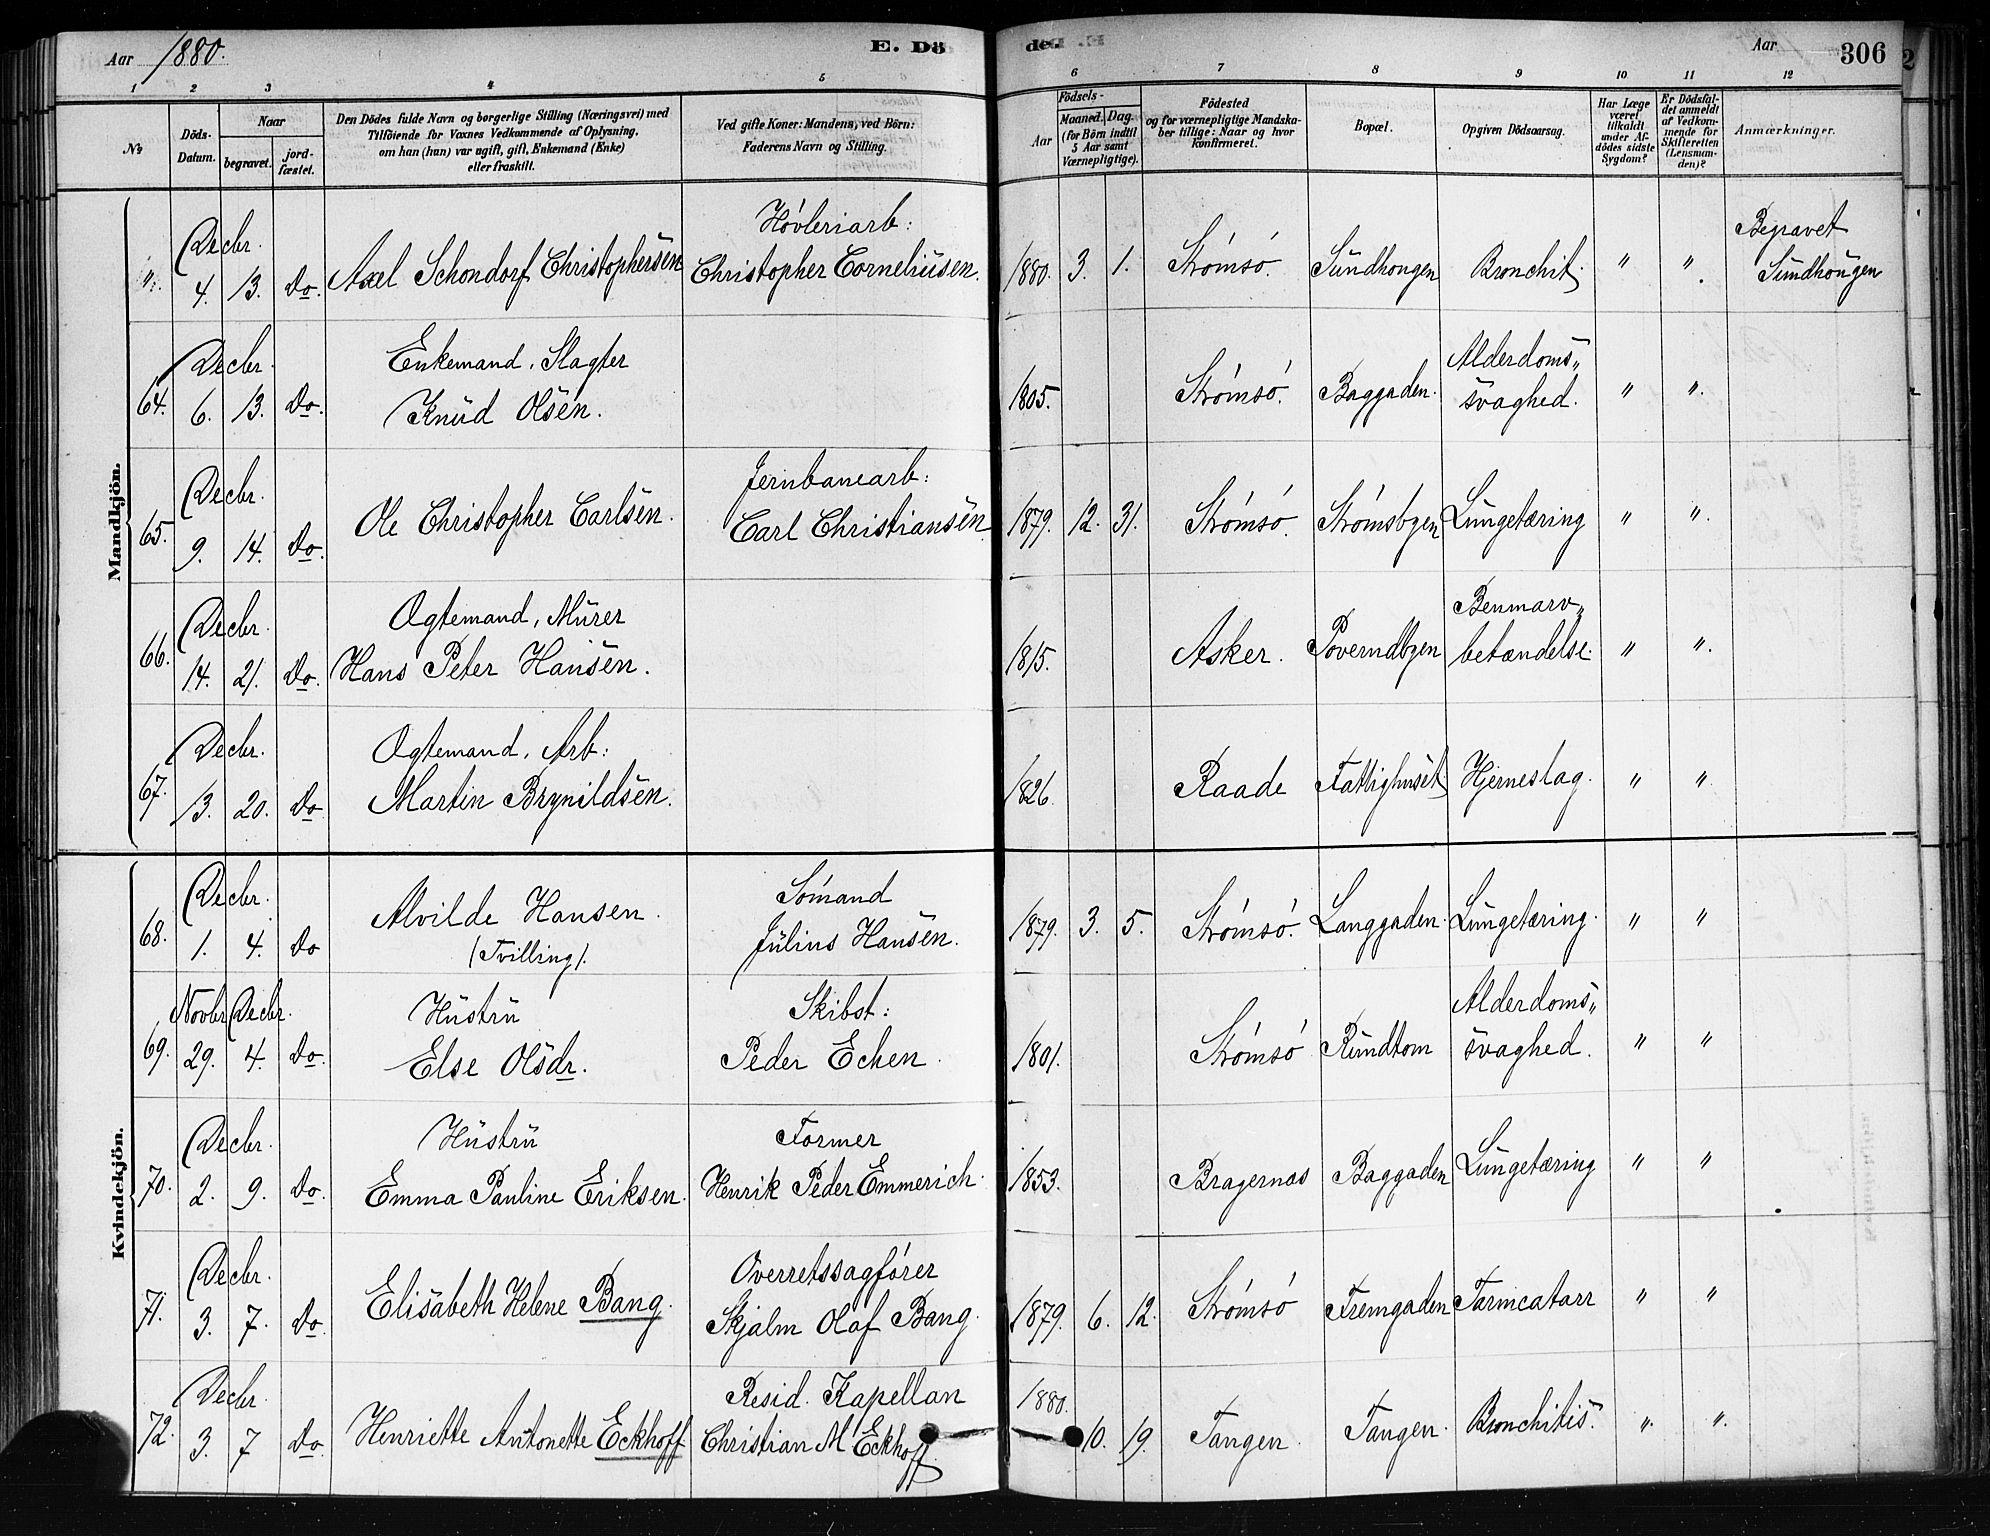 Aar 1880.
E. Dö
de.
Aar
306
1 2 3 4 5 6 7 8 9 10 11 12
No
Döds-Datum.
Naar
begravet.
jord-fæstet.
Den Dödes fulde Navn og borgerlige Stilling (Næringsvei) med
Tilföiende for Voxnes Vedkommende af Oplysning,
om han (hun) var ugift, gift, Enkemand (Enke)
eller fraskilt.
Ved gifte Koner: Mandens, ved Börn:
Faderens Navn og Stilling.
Födsels-
Aar
Maaned. Dag.
(for Börn indtil
5 Aar samt
Værnepligtige).
Födested
og for værnepligtige Mandska-
ber tillige: Naar og hvor
konfirmeret.
Bopæl.
Opgiven Dödsaarsag.
Har Læge
været
tilkaldt
under Af-
dödes sidste
Sygdom?
Er Dödsfal-
det anmeldt
af Vedkom-
mende for
Skifteretten
(Lensman-
den)?
Anmærkninger.
Mandkjön.
Decbr. Høvleriarb: Begravet
4. 13. Do. Axel Schondorf Christophersen Christopher Corneliusen. 1880. 3. 1. Strømsø. Sundhougen Bronchit. " " Sundhougen
Decbr. Enkemand, Slagter Alderdoms-
64. 6. 13. Do. Knud Olsen. 1805. Strømsø. Baggaden. svaghed. " "
Decbr. Jernbanearb:
65. 9. 14. Do. Ole Christopher Carlsen. Carl Christiansen 1879. 12. 31. Strømsø. Strømsbyen Lungetæring " "
Decbr. Ægtemand, Murer Benmarv-
66. 14. 21. Do. Hans Peter Hansen. 1815. Asker. betændelse. " "
Decbr. Ægtemand, Arb:
67. 13. 20. Do. Martin Brynildsen. 1826. Raade Fattighuset Hjerneslag. " "
Kvindekjön.
Decbr. Sømand
68. 1. 4. Do Alvilde Hansen. Julius Hansen. 1879. 3. 5. Strømsø. Langgaden. Lungetæring. " "
(Tvilling).
Novbr. Decbr. Hustru Skibst: Alderdoms-
69. 29. 4. Do. Else Olsdr. Peder Echen. 1801. Strømsø Rundtom svaghed. " "
Decbr. Hustru Former
70. 2. 9. Do. Emma Pauline Eriksen. Henrik Peder Emmerich. 1853. Bragernæs Baggaden Lungetæring " "
Decbr. Overretssagfører
71. 3. 7. Do. Elisabeth Helene Bang. Skjalm Olaf Bang. 1879. 6. 12. Strømsø Fremgaden Tarmcatarr " "
Decbr. Resid. Kapellan 1880.
72. 3. 7 Do. Henriette Antonette Eckhoff Christian M Eckhoff. 10. 19. Tangen. Tangen. Bronchitis. " "